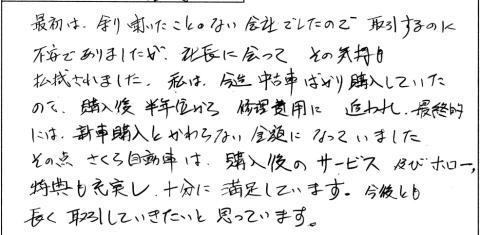 最初は、余り聞いたことのない会社でしたので 取引するのに
不安でありましたが、社長に会って その気持も
払拭されました。私は、今迄 中古車ばかり購入していた
ので、購入後 半年位から 修理費用に 追われ、最終的
には、新車購入とかわらない金額になっていました
その点 さくら自動車は、購入後のサービス 及びホロー,
特典も充実し、十分に 満足しています。今後とも
長く 取引していきたいと 思っています。